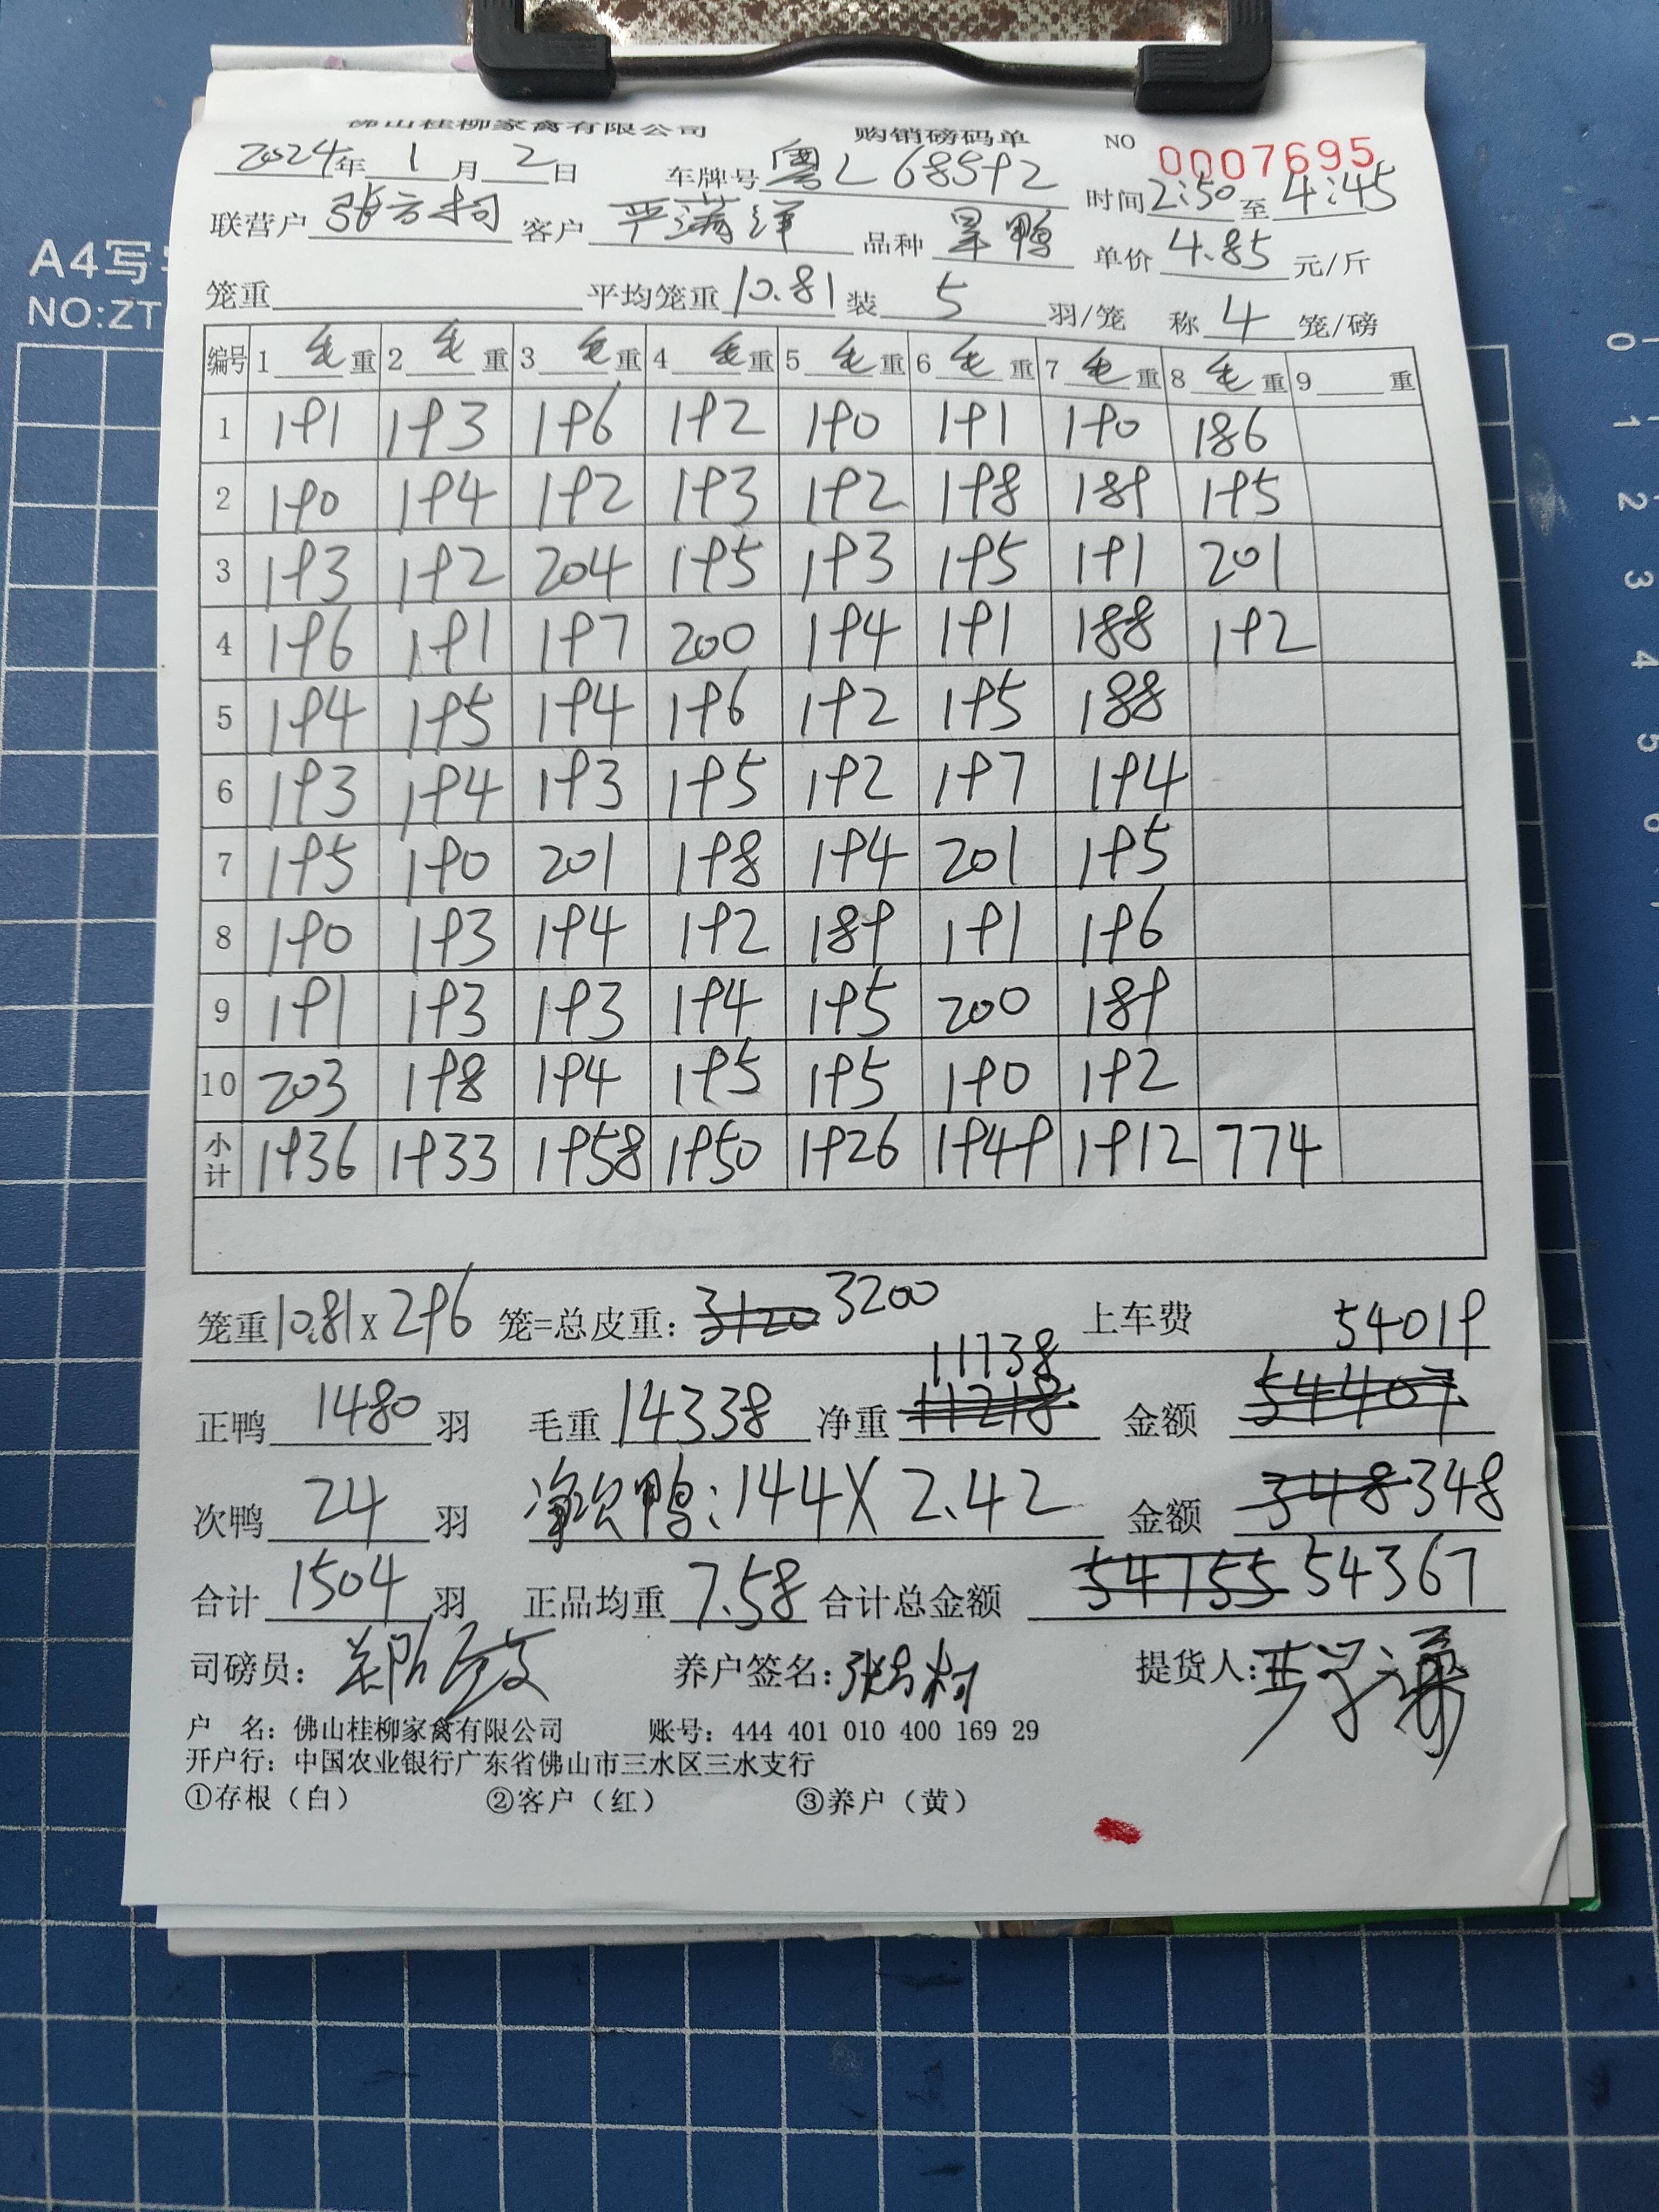 佛山桂柳家禽有限公司 购销磅码单 NO 0007695
2024年 1 月 2 日 车牌号 粤L 68592 时间 2:50 至 4:45
联营户 张方柯 客户 严满洋 品种 旱鸭 单价 4.85 元/斤
笼重 平均笼重 10.81 装 5 羽/笼 称 4 笼/磅
编号 1 毛 重 2 毛 重 3 毛 重 4 毛 重 5 毛 重 6 毛 重 7 毛 重 8 毛 重 9 重
1 191 193 196 192 190 191 190 186
2 190 194 192 193 192 198 189 195
3 193 192 204 195 193 195 191 201
4 196 191 197 200 194 191 188 192
5 194 195 194 196 192 195 188
6 193 194 193 195 192 197 194
7 195 190 201 198 194 201 195
8 190 193 194 192 189 191 196
9 191 193 193 194 195 200 189
10 203 198 194 195 195 190 192
小计 1936 1933 1958 1950 1926 1949 1912 774
笼重 10.81 x 296 笼=总皮重: 3120 3200 上车费 54019
11138
正鸭 1480 羽 毛重 14338 净重 11218 金额 54407
次鸭 24 羽 净次鸭: 144 X 2.42 金额 348 348
合计 1504 羽 正品均重 7.58 合计总金额 54755 54367
司磅员: 养户签名: 张方柯 提货人:
户 名: 佛山桂柳家禽有限公司 账号: 444 401 010 400 169 29
开户行: 中国农业银行广东省佛山市三水区三水支行
①存根（白） ②客户（红） ③养户（黄）
A4写
NO:ZT
0
1
2
3
4
5
6